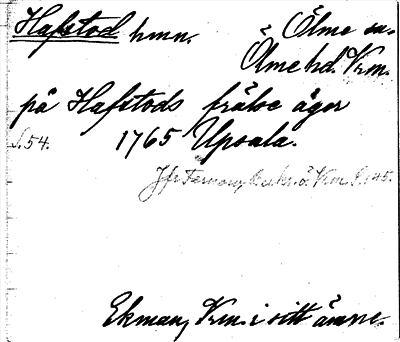 Hafstod hmn. Ölme sn.
Ölme hd. Vrm.
på Hafstods fräloe äger
s. 54. 1765 Upsala.
Jfr Fernow, Beskr. ö. Vrm. s. 145.
Ekman, Vrm. i sitt ämne.